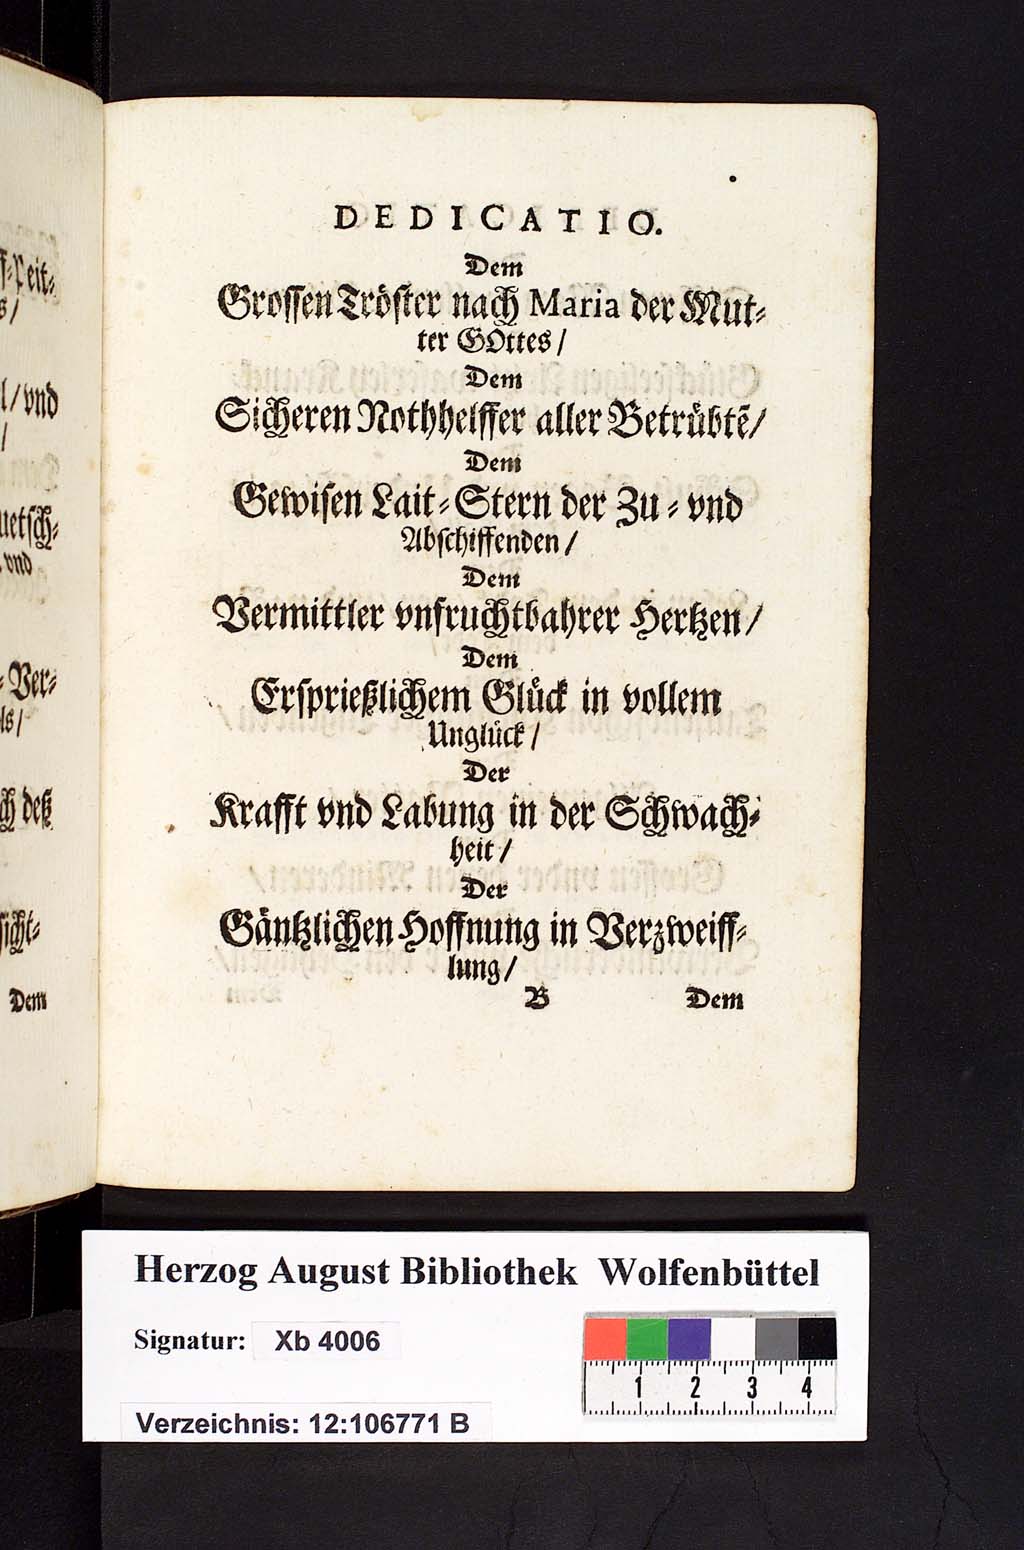 DEDICATIO.
Dem
Grossen Tröster nach Maria der Mut-
ter GOttes /
Dem
Sicheren Nothhelffer aller Betrübtē/
Dem
Gewisen Lait-Stern der Zu- vnd
Abschiffenden /
Dem
Vermittler vnfruchtbahrer Hertzen /
Dem
Ersprießlichem Glück in vollem
Unglück /
Der
Krafft vnd Labung in der Schwach-
heit /
Der
Gäntzlichen Hoffnung in Verzweiff-
lung /
B Dem
l / vnd
uetsch-
vnd
Ver-
ls /
ch deß
sicht-
Dem
Herzog August Bibliothek Wolfenbüttel
Signatur: Xb 4006
1 2 3 4
Verzeichnis: 12:106771 B